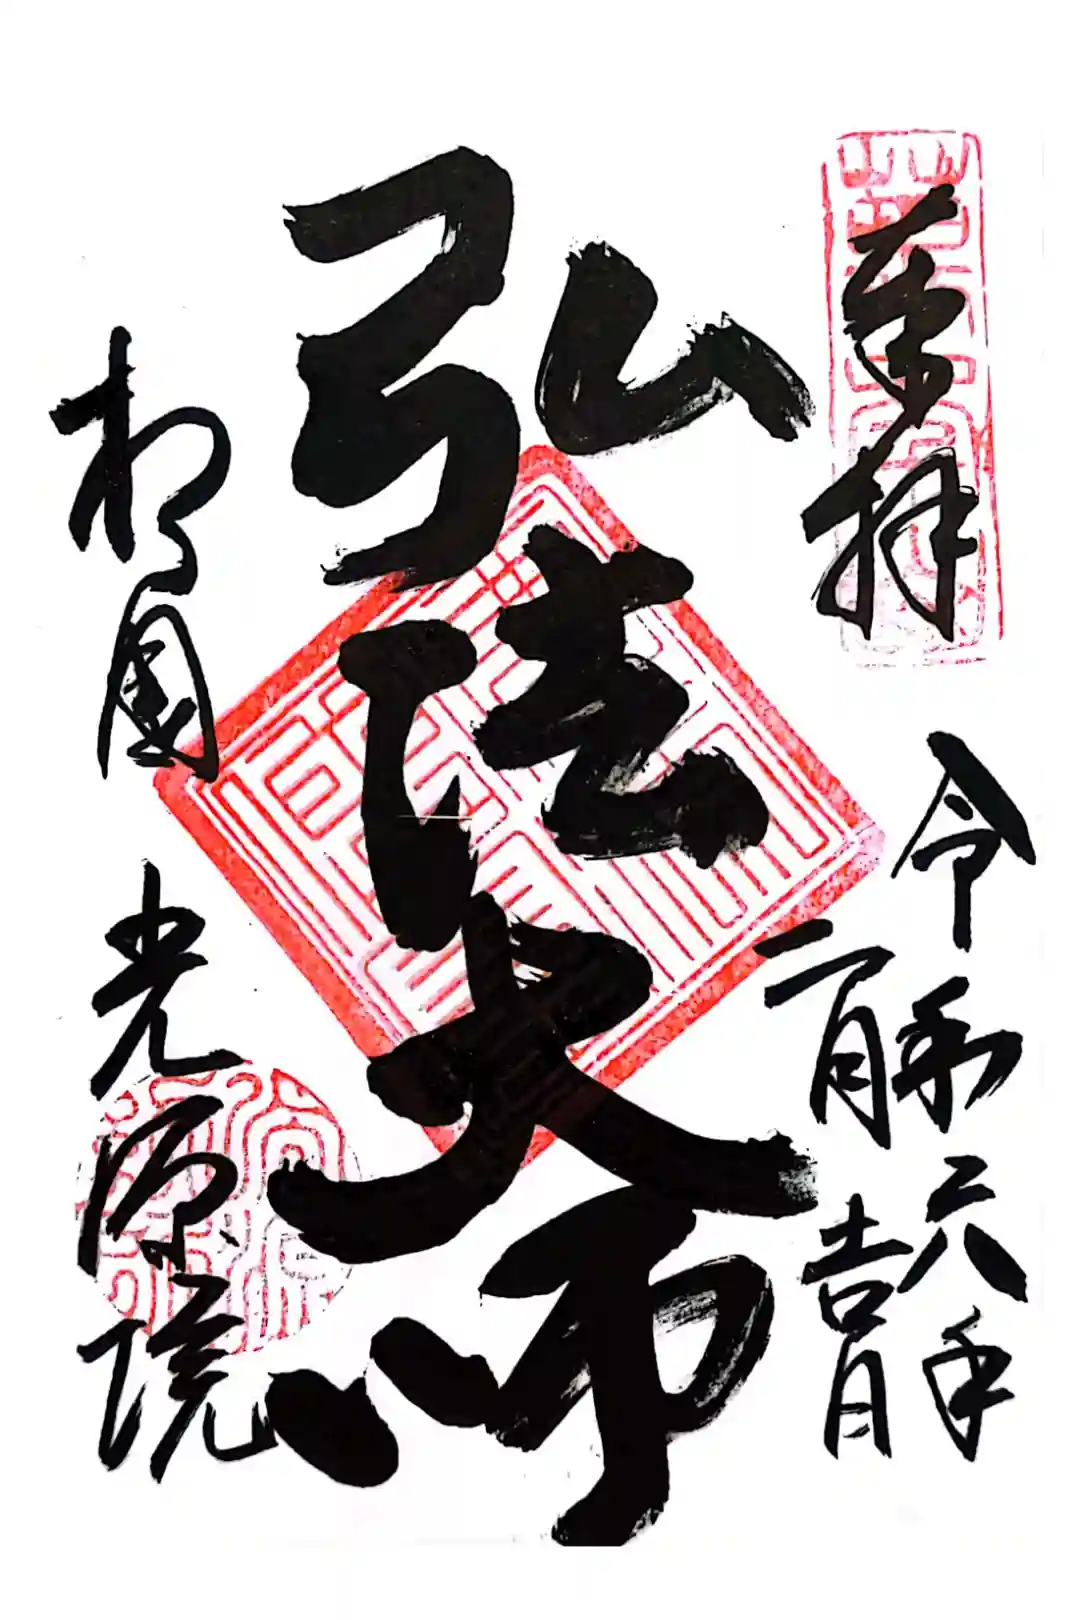 奉拝
令和六年
二月吉日
弘法大師
相國 光源院